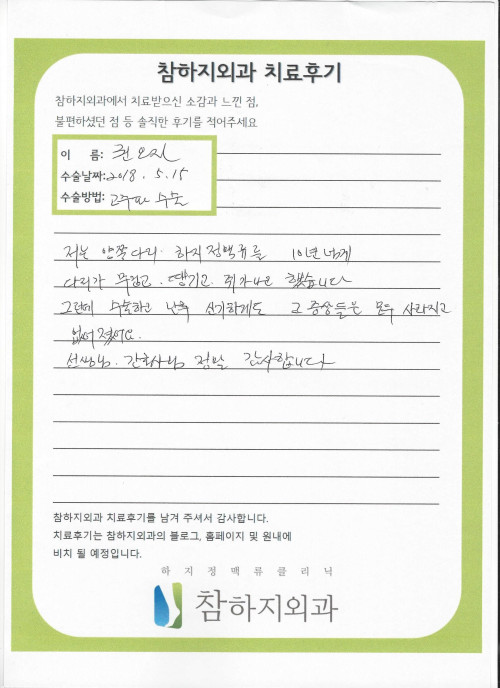 참하지외과 치료후기
참하지외과에서 치료받으신 소감과 느낀 점,
불편하셨던 점 등 솔직한 후기를 적어주세요
이 름: 권오진
수술날짜: 2018. 5. 15
수술방법: 고주파 수술
저는 양쪽다리 하지정맥류를 10년 넘게
다리가 무겁고. 땡기고. 쥐가나고 했습니다
그런데 수술하고 난후 신기하게도 그 증상들은 모두 사라지고
없어졌어요.
선생님. 간호사님 정말 감사합니다
참하지외과 치료후기를 남겨 주셔서 감사합니다.
치료후기는 참하지외과의 블로그, 홈페이지 및 원내에
비치 될 예정입니다.
하지정맥류클리닉
참하지외과